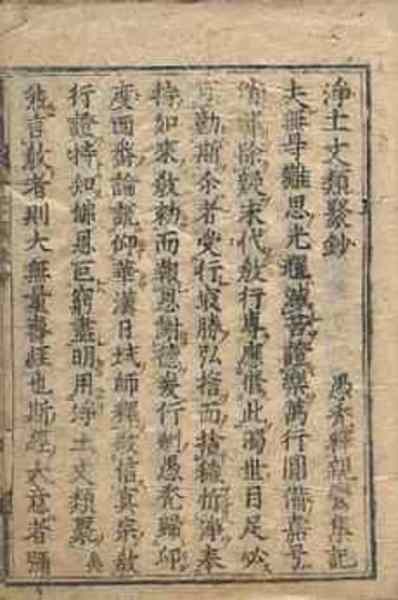 淨土文類聚鈔　愚禿釋親鸞集記
夫無导難思光耀滅苦證樂萬行圓備嘉号
消障除疑末代教行專應修此濁世目足必
可勤斯尒者受行最勝弘誓而捨穢忻淨奉
持如來教勅而報恩謝德爰片州愚禿歸印
度西蕃論說仰華漢日域師釋敬信真宗教
行證特知佛恩叵窮盡明用淨土文類聚矣
然言教者則大無量壽經也斯經大意者彌